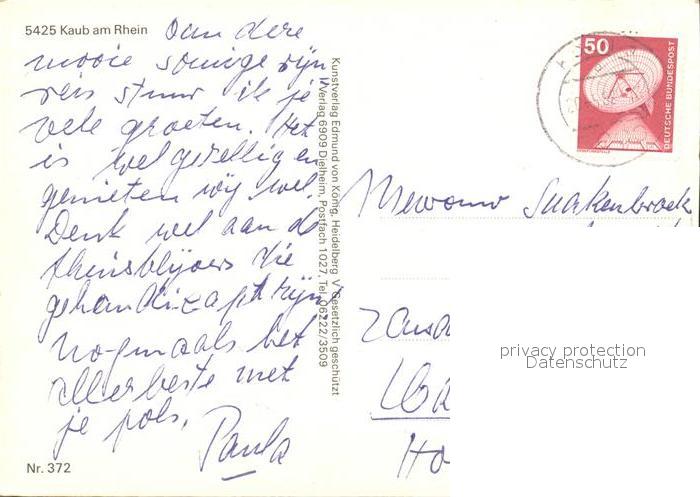 5425 Kaub am Rhein
Van dere
mooie sonnige rijn
reis stuur ik je
vele groeten. Het
is wel gezellig en
genieten wij wel.
Denk wel aan de
thuisblijvers die
gehandicapt zijn
nogmaals het
allerbeste met
je pols.
Paula
Nr. 372
Kunstverlag Edmund von König, Heidelberg
Verlag 6909 Dielheim, Postfach 1027, Tel. 06222/3509
Gesetzlich geschützt
50
DEUTSCHE BUNDESPOST
Mevrouw Snakenbroek
privacy protection
Datenschutz